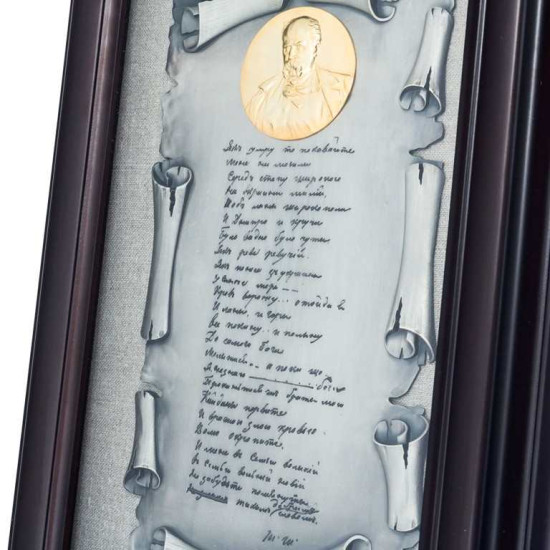 Якъ умру то поховайте
Мене на могилі
Середъ степу широкого
на Вкраини милій.
Щобъ лани широкополи
И Днипро и кручи
Було видно було чути
Якъ реве ревучий.
Якъ понесе зъ украины
У синее море --
Кровъ ворожу.. отойди я
И лани, и гори
Все покину.. и полыну
До самого бога
Молытысь.. а поки що
Я не знаю бога
Поховайте
Кайданы порвите
И вражою злою кровъю
Волю окропите.
И мене в семьи великій
В семьи вольній новій
Не забудьте помянути
тихимъ словомъ.
Т. Ш.